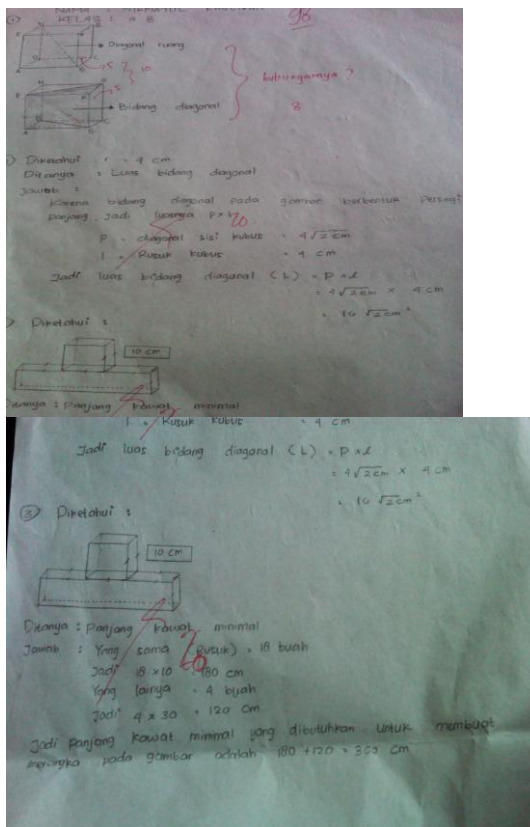 KELAS : A B
98
①
Diagonal ruang
5
10
5
Bidang diagonal
hubungannya ?
8
Diketahui : r = 4 cm
Ditanya : Luas bidang diagonal
Jawab :
Karena bidang diagonal pada gambar berbentuk Persegi
Panjang. Jadi luasnya P x l
20
P = diagonal sisi kubus = 4√2 cm
l = Rusuk kubus = 4 cm
Jadi luas bidang diagonal (L) = P x l
= 4√2 cm x 4 cm
= 16 √2 cm²
Diketahui :
10 cm
Ditanya : Panjang kawat minimal
l = Rusuk kubus = 4 cm
Jadi luas bidang diagonal (L) = P x l
= 4√2 cm x 4 cm
= 16 √2 cm²
③ Diketahui :
10 cm
Ditanya : Panjang kawat minimal
Jawab : Yang sama (Rusuk) = 18 buah
Jadi 18 x 10 = 180 cm
Yang lainya = 4 buah
Jadi 4 x 30 = 120 cm
Jadi Panjang kawat minimal yang dibutuhkan untuk membuat
kerangka pada gambar adalah 180 + 120 = 300 cm